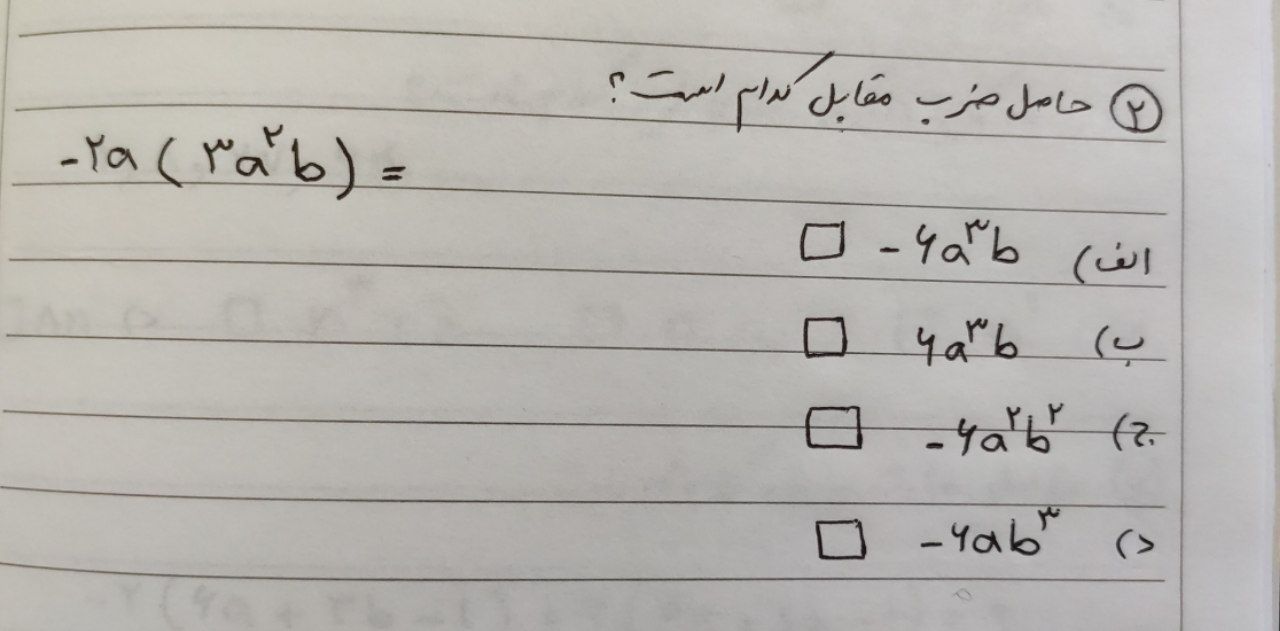 ۲ حاصل ضرب مقابل کدام است؟
-۲a (۳a^۲b) =
الف) -۶a^۳b □
ب) ۶a^۳b □
ج) -۶a^۲b^۲ □
د) -۶ab^۳ □